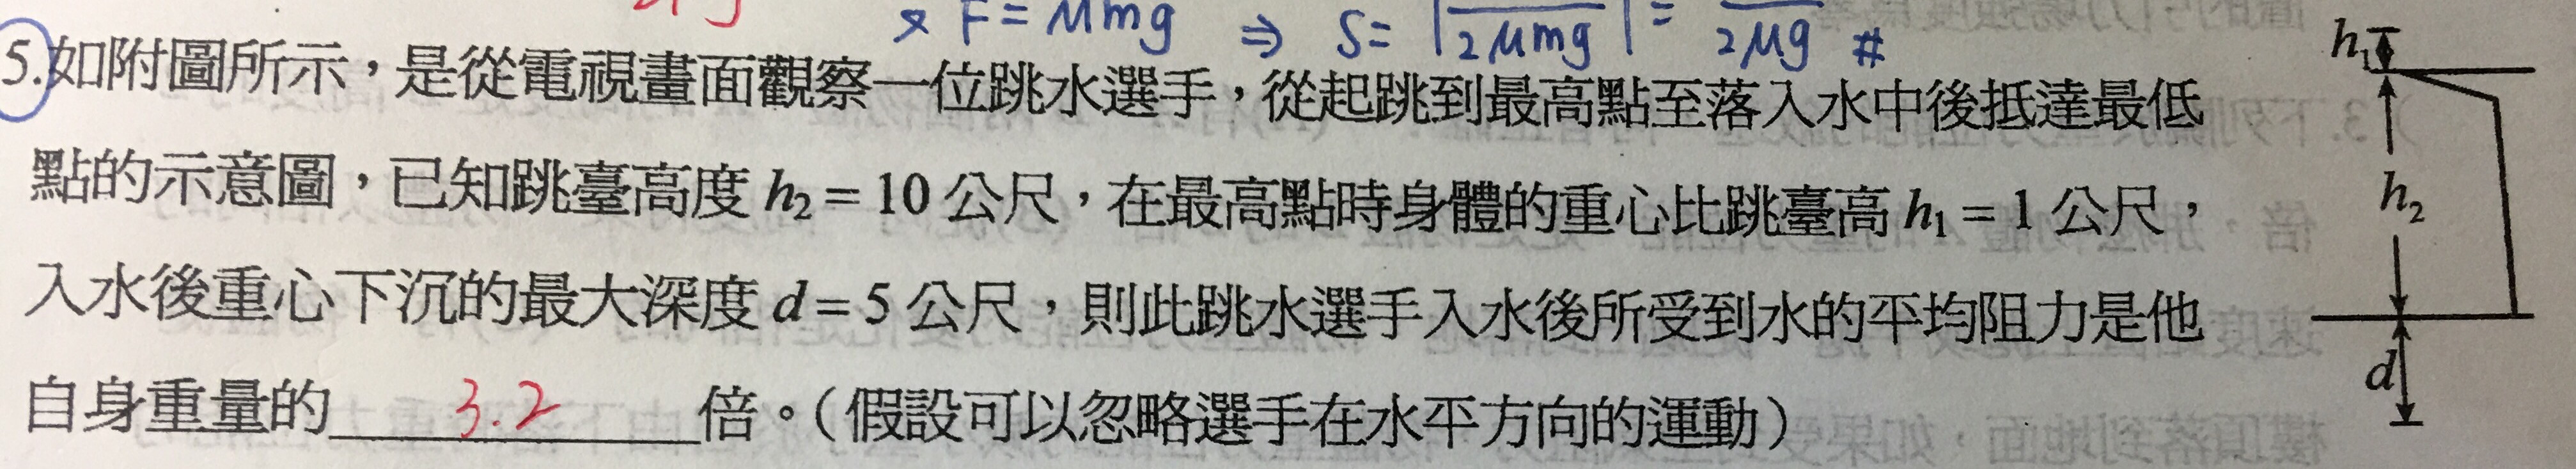 × F = μmg ⇒ S = | 2μmg | = 2μg #
5.如附圖所示，是從電視畫面觀察一位跳水選手，從起跳到最高點至落入水中後抵達最低
點的示意圖，已知跳臺高度 h₂ = 10 公尺，在最高點時身體的重心比跳臺高 h₁ = 1 公尺，
入水後重心下沉的最大深度 d = 5 公尺，則此跳水選手入水後所受到水的平均阻力是他
自身重量的 3.2 倍。（假設可以忽略選手在水平方向的運動）
h₁
h₂
d